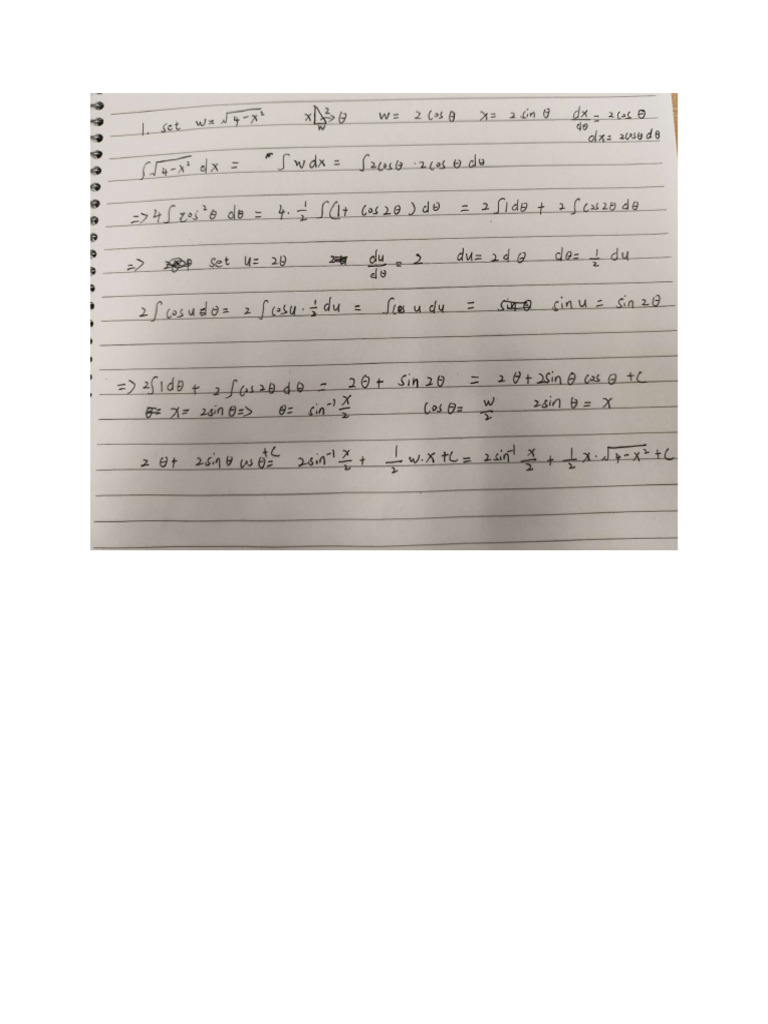 1. set w = √4-x² x 2 θ w w = 2 cos θ x = 2 sin θ dx/dθ = 2cos θ
dx = 2cosθ dθ
∫√4-x² dx = ∫ w dx = ∫2cosθ · 2cos θ dθ
=> 4∫cos²θ dθ = 4 · 1/2 ∫(1 + cos 2θ) dθ = 2∫1dθ + 2∫cos2θ dθ
=> set u = 2θ du/dθ = 2 du = 2dθ dθ = 1/2 du
2∫cos u dθ = 2∫cosu · 1/2 du = ∫cos u du = sin u = sin 2θ
=> 2∫1dθ + 2∫cos2θ dθ = 2θ + sin 2θ = 2θ + 2sin θ cos θ + C
x = 2sin θ => θ = sin⁻¹ x/2 cos θ = w/2 2sin θ = x
2θ + 2sin θ cos θ + C = 2sin⁻¹ x/2 + 1/2 w·x + C = 2sin⁻¹ x/2 + 1/2 x·√4-x² + C